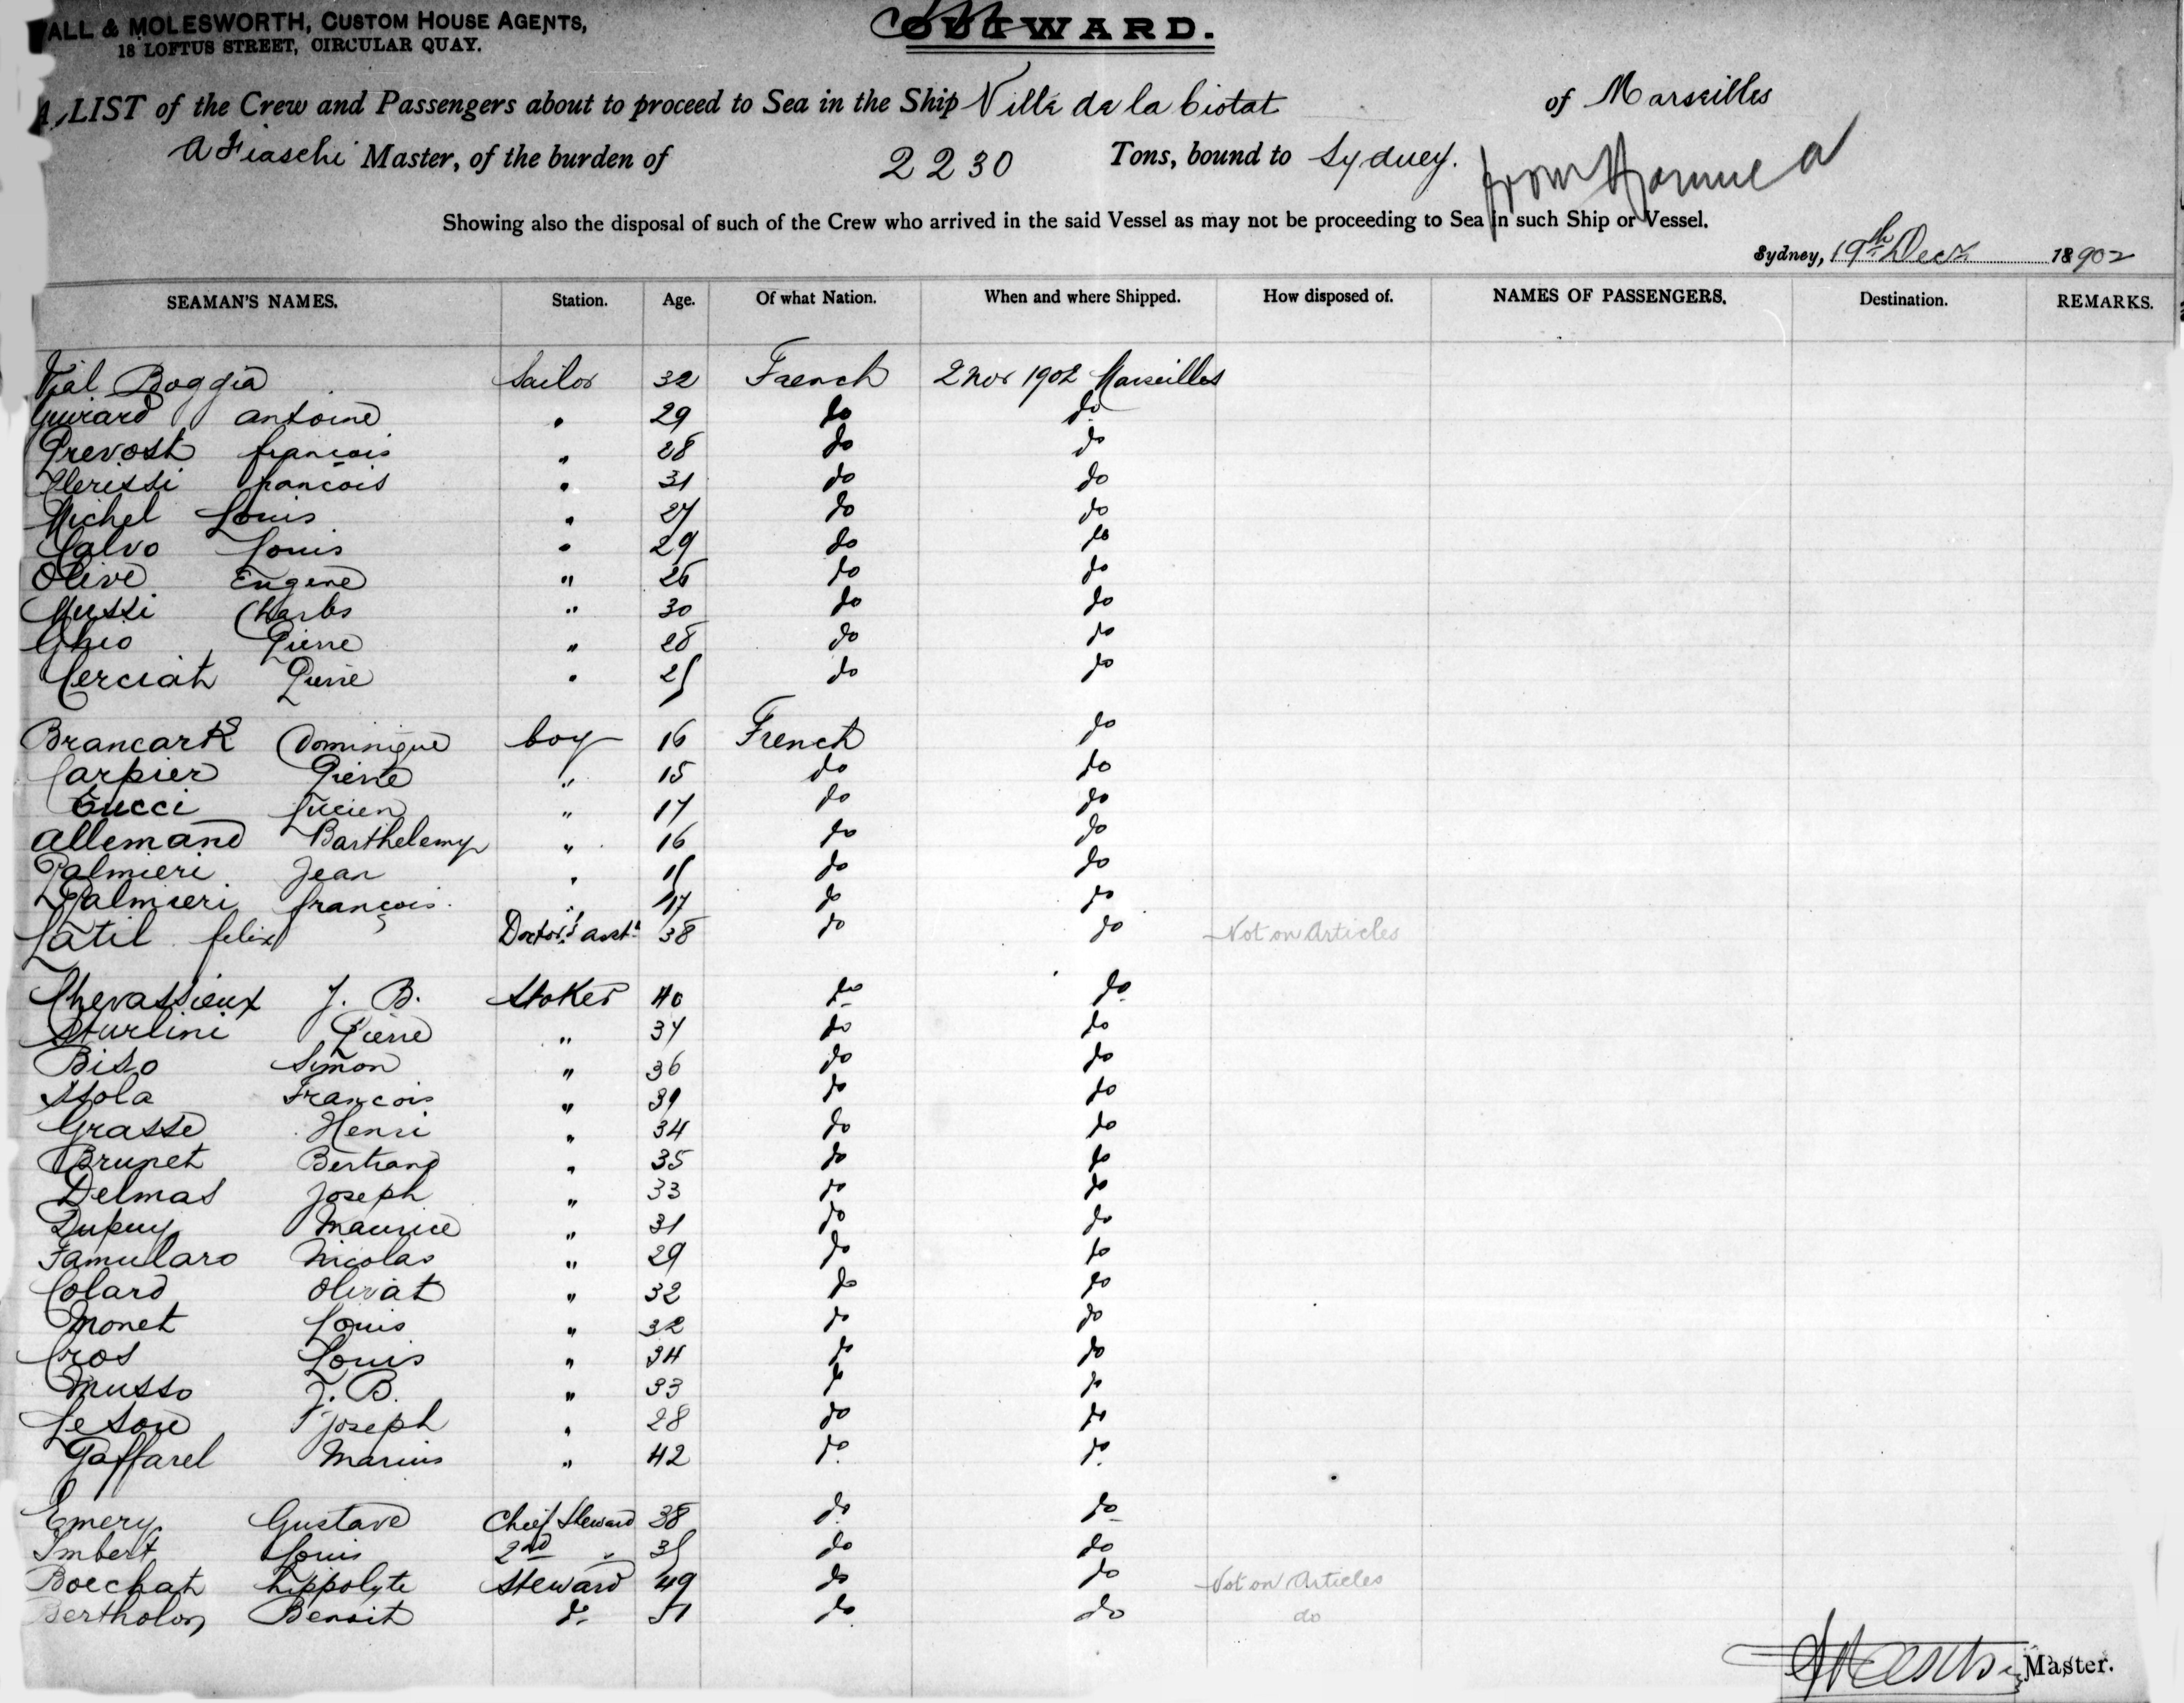 ALL & MOLESWORTH, CUSTOM HOUSE AGENTS,
18 LOFTUS STREET, CIRCULAR QUAY.
OUTWARD.
A LIST of the Crew and Passengers about to proceed to Sea in the Ship Ville de la Ciotat of Marseilles
A Fiaschi Master, of the burden of 2230 Tons, bound to Sydney. from Noumea
Showing also the disposal of such of the Crew who arrived in the said Vessel as may not be proceeding to Sea in such Ship or Vessel.
Sydney, 19th Decr 18902
SEAMAN'S NAMES. Station. Age. Of what Nation. When and where Shipped. How disposed of. NAMES OF PASSENGERS. Destination. REMARKS.
Vial Boggia Sailor 32 French 2 Nov 1902 Marseilles
Guirard antoine " 29 do do
Prevost françois " 28 do do
Clerissi francois " 31 do do
Michel Louis " 27 do do
Calvo Louis " 29 do do
Olive Eugene " 26 do do
Mussi Charles " 30 do do
Ghio Pierre " 28 do do
Cerciat Pierre " 25 do do
Brancark Dominique boy 16 French do
Carpier Pierre " 15 do do
Cucci Lucien " 17 do do
Allemand Barthelemy " 16 do do
Palmieri Jean " 15 do do
Palmieri françois " 17 do do
Latil felix Doctor's asst 38 do do Not on Articles
Chevassieux J. B. Stoker 40 do do
Sturlini Pierre " 37 do do
Biso Simon " 36 do do
Stola Francois " 39 do do
Grasse Henri " 34 do do
Brunet Bertrand " 35 do do
Delmas Joseph " 33 do do
Dupuy Maurice " 31 do do
Famularo Nicolas " 29 do do
Colard Olivat " 32 do do
Monet Louis " 32 do do
Cros Louis " 34 do do
Musso J. B. " 33 do do
Le Sou Joseph " 28 do do
Gaffarel Marius " 42 do do
Emery Gustave Chief Steward 38 do do
Imbert Louis 2nd " 35 do do
Boechat hippolyte Steward 49 do do Not on Articles
Bertholon Benoit do 51 do do do
Master.